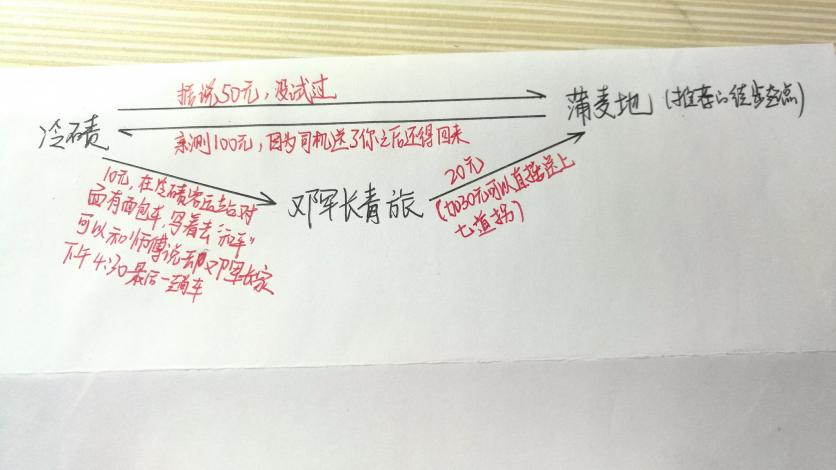 据说50元，没试过
冷碛
蒲麦地（推荐的徒步起点）
亲测100元，因为司机送了你之后还得回来
10元，在冷碛客运站对
面有面包车，写着去“沅车”
可以和师傅说去邓军长家
下午4:30最后一趟车
邓军长青旅
20元
（加30元可以直接送上
七道拐）